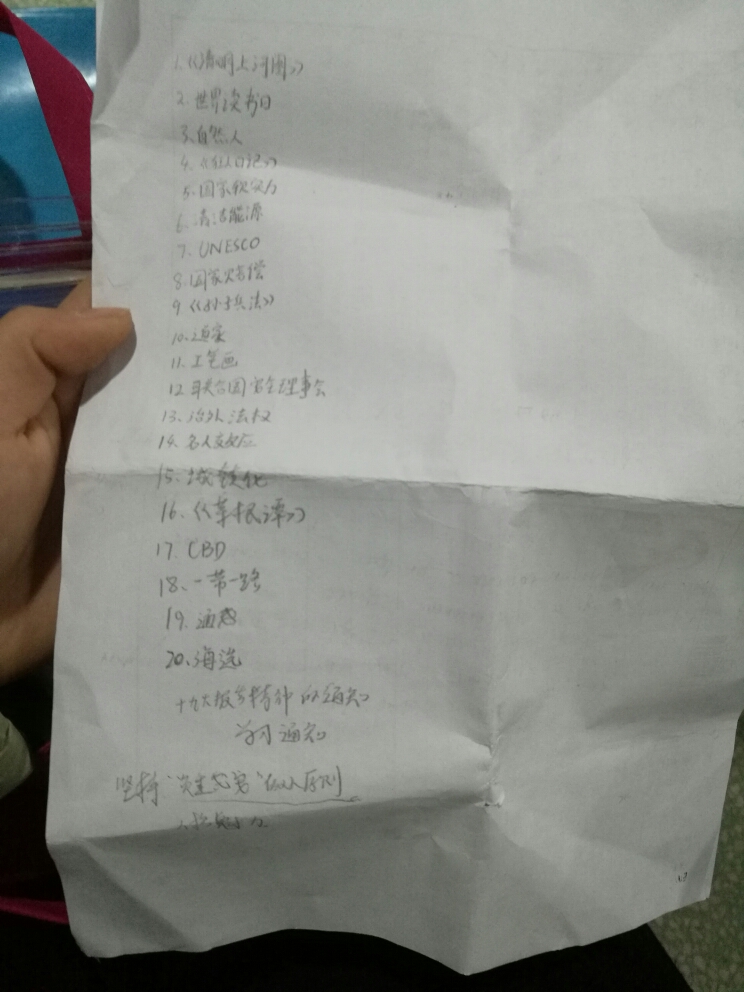 1.《清明上河图》
2.世界读书日
3.自然人
4.《狂人日记》
5.国家软实力
6.清洁能源
7.UNESCO
8.国家灾害偿
9《孙子兵法》
10.道家
11.工笔画
12联合国安全理事会
13.治外法权
14.名人效应
15.城镇化
16.《菜根谭》
17.CBD
18.一带一路
19.通感
20.海选
十九大报告精神的通知
学习通知
坚持"党建